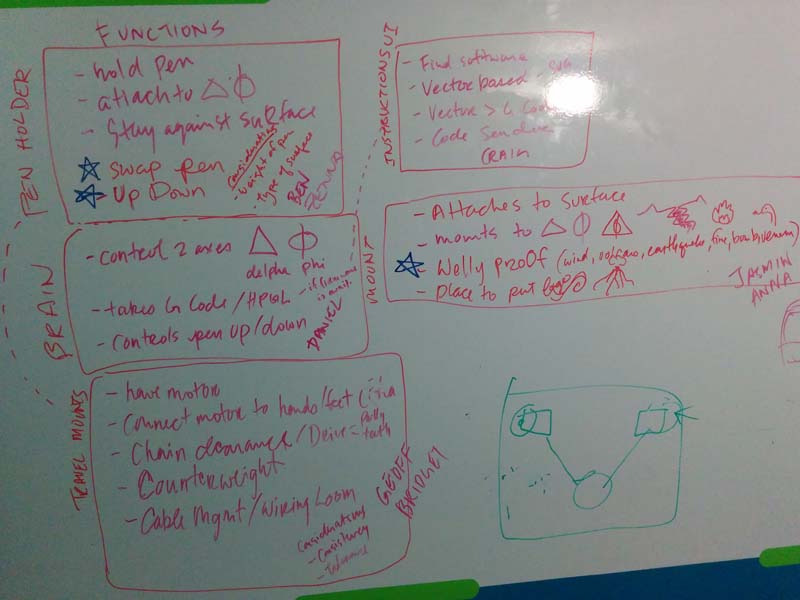 FUNCTIONS
PEN HOLDER
- hold pen
- attach to △ ϕ
- Stay against surface
☆ Swap Pen
☆ Up Down
Considerations
- weight of pen
- type of surface
BEN
INSTRUCTIONS UI
- Find software
- Vector based - SVG
- Vector > G Code
- Code Sender
CRAIG
BRAIN
- control 2 axes △ ϕ
delpha phi
- takes G Code/HPGL
- controls pen up/down
DANIEL
MOUNT
- Attaches to Surface
- mounts to △ ϕ
☆ - Welly proof (wind, volcano, earthquake, fire,
- Place to put
JASMIN
ANNA
TRAVEL MOUNTS
- have motor
- Connect motor to hands/feet
- Chain clearance/Drive =
- Counterweight
- Cable Mgmt/Wiring Loom
Considerations
- Consistency
- Tolerance
GEOFF
BRIDGET